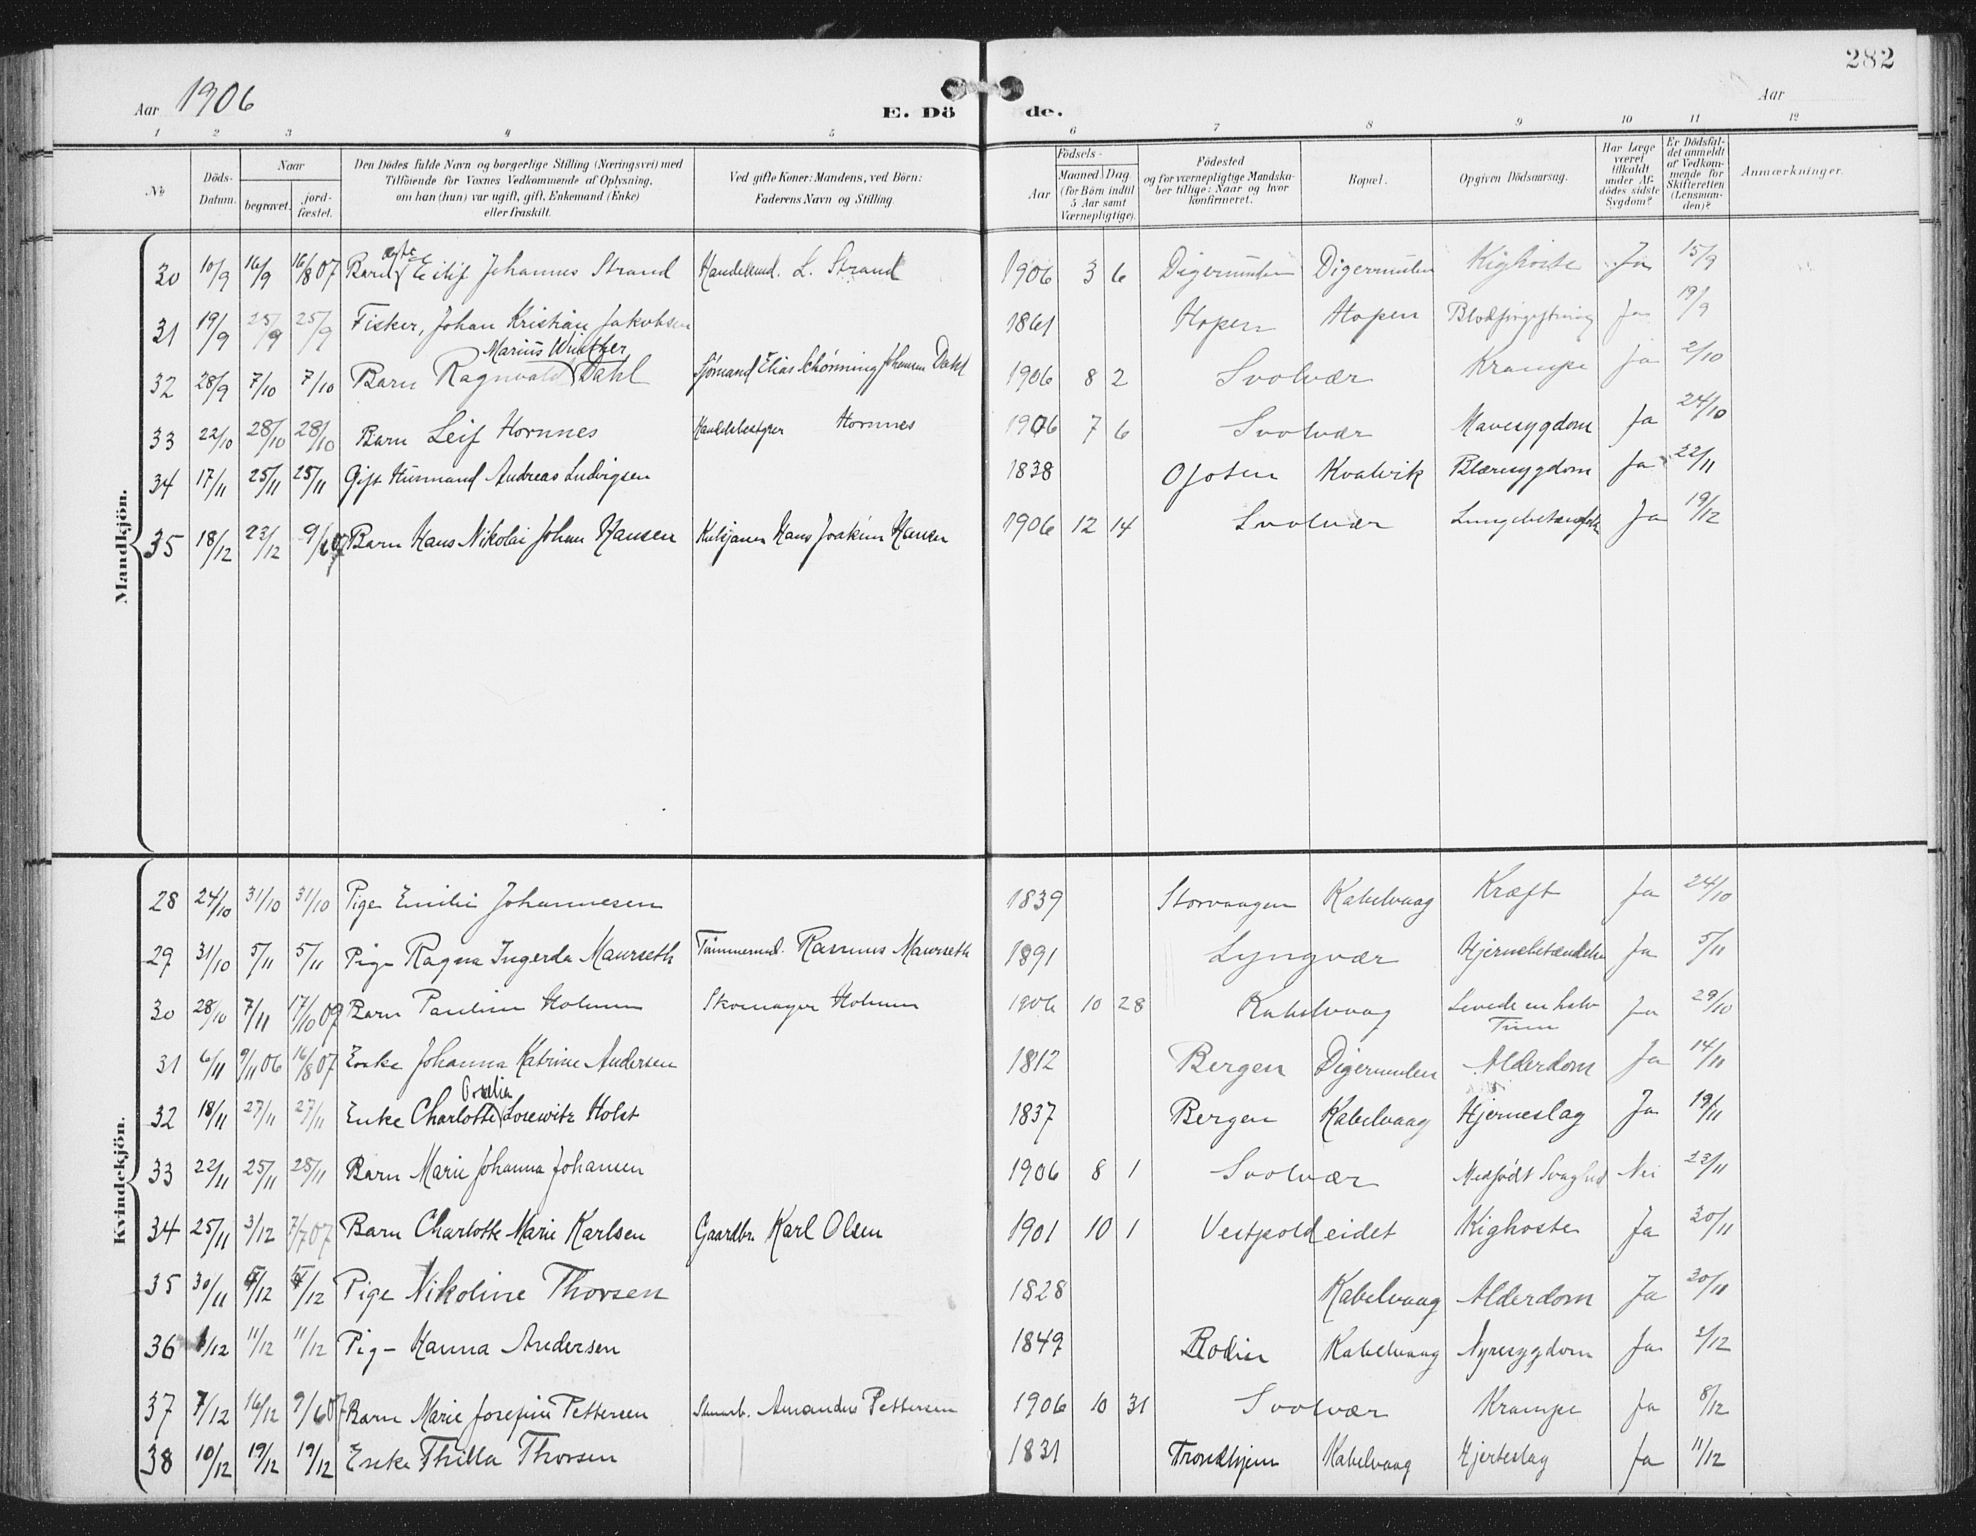 282
Aar 1906
E. Døde.
Aar
1 2 3 4 5 6 7 8 9 10 11 12
No
Döds-Datum.
Naar
begravet.
jord-fæstet.
Den Dödes fulde Navn og borgerlige Stilling (Næringsvei) med
Tilföiende for Voxnes Vedkommende af Oplysning,
om han (hun) var ugift, gift, Enkemand (Enke)
eller fraskilt.
Ved gifte Koner: Mandens, ved Börn:
Faderens Navn og Stilling.
Födsels-
Aar
Maaned Dag
(for Börn indtil
5 Aar samt
Værnepligtige).
Födested
og for værnepligtige Mandska-
ber tillige: Naar og hvor
konfirmeret.
Bopæl.
Opgiven Dödsaarsag.
Har Læge
været
tilkaldt
under Af-
dödes sidste
Sygdom?
Er Dödsfal-
det anmeldt
af Vedkom-
mende for
Skifteretten
(Lensman-
den)?
Anmærkninger.
Mandkjön.
30 10/9 16/9 16/8 07 Barn Johannes Strand Handelsmd. L. Strand 1906 3 6 Digermulen Digermulen Kighoste Ja 15/9
31 19/9 25/9 25/9 Fisker, Johan Kristian Jakobsen 1861 Hopen Hopen Blodforgiftning Ja 19/9
Marius Winther
32 28/9 7/10 7/10 Barn Ragnvald Dahl Sjømand Elias Schønning Johansen Dahl 1906 8 2 Svolvær Krampe Ja 2/10
33 22/10 28/10 28/10 Barn Leif Hornnes Handelsbestyrer Hornnes 1906 7 6 Svolvær Mavesygdom Ja 24/10
34 17/11 25/11 25/11 Gift Husmand Andreas Ludvigsen 1838 Ofoten Kvalvik Blæresygdom Ja 22/11
35 18/12 23/12 9/6 07 Barn Hans Nikolai Johan Hansen Hans Joakim Hansen 1906 12 14 Svolvær Lungebetændelse Ja 19/12
Kvindekjön.
28 24/10 31/10 31/10 Pige Emilie Johannesen 1839 Storvaagen Kabelvaag Kræft Ja 24/10
29 31/10 5/11 5/11 Pige Ragna Ingerda Maurseth Tømmermd. Rasmus Maurseth 1891 Lyngvær Hjernebetændelse Ja 5/11
30 28/10 7/11 17/10 07 Barn Pauline Holmen Skomager Holmen 1906 10 28 Kabelvaag Levede en halv Ja 29/10
Time
31 6/11 9/11 06 16/8 07 Enke Johanna Katrine Andersen 1812 Bergen Digermulen Alderdom Ja 14/11
32 18/11 27/11 27/11 Enke Charlotte Losewitz Holst 1837 Bergen Kabelvaag Hjerneslag Ja 19/11
33 22/11 25/11 25/11 Barn Marie Johanna Johansen 1906 8 1 Svolvær Medfødt Svaghed Nei 23/11
34 25/11 3/12 7/7 07 Barn Charlotte Marie Karlsen Gaardbr. Karl Olsen 1901 10 1 Vestpoldeidet Kighoste Ja 30/11
35 30/11 Pige Nikoline Thorsen 1828 Kabelvaag Alderdom Ja 30/11
36 1/12 11/12 11/12 Pige Hanna Andersen 1849 Bodin Kabelvaag Nyresygdom Ja 2/12
37 7/12 16/12 9/6 07 Barn Marie Josefine Pettersen Amandus Pettersen 1906 10 31 Svolvær Krampe Ja 8/12
38 10/12 19/12 19/12 Enke Thilla Thorsen 1831 Trondhjem Kabelvaag Hjerteslag Ja 11/12